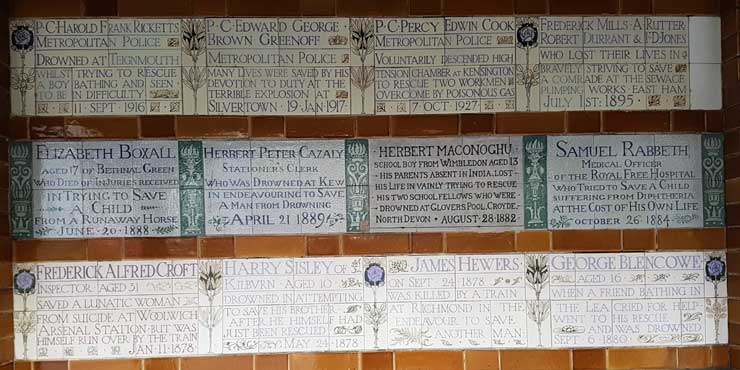 P·C·HAROLD FRANK RICKETTS
METROPOLITAN POLICE
DROWNED AT TEIGNMOUTH
WHILST TRYING TO RESCUE
A BOY BATHING AND SEEN
TO BE IN DIFFICULTY
11 SEPT 1916
P·C·EDWARD GEORGE
BROWN GREENOFF
METROPOLITAN POLICE
MANY LIVES WERE SAVED BY HIS
DEVOTION TO DUTY AT THE
TERRIBLE EXPLOSION AT
SILVERTOWN · 19 JAN 1917
P·C·PERCY EDWIN COOK
METROPOLITAN POLICE
VOLUNTARILY DESCENDED HIGH
TENSION CHAMBER AT KENSINGTON
TO RESCUE TWO WORKMEN
OVERCOME BY POISONOUS GAS
7 OCT 1927
FREDERICK MILLS · A RUTTER
ROBERT DURRANT & F·D·JONES
WHO LOST THEIR LIVES IN
BRAVELY STRIVING TO SAVE
A COMRADE AT THE SEWAGE
PUMPING WORKS EAST HAM
JULY 1ST · 1895
ELIZABETH BOXALL
AGED 17 OF BETHNAL GREEN
WHO DIED OF INJURIES RECEIVED
IN TRYING TO SAVE
A CHILD
FROM A RUNAWAY HORSE
JUNE 20 · 1888
HERBERT PETER CAZALY
STATIONER'S CLERK
WHO WAS DROWNED AT KEW
IN ENDEAVOURING TO SAVE
A MAN FROM DROWNING
APRIL 21 1889
HERBERT MACONOGHU
SCHOOL BOY FROM WIMBLEDON AGED 13
HIS PARENTS ABSENT IN INDIA, LOST
HIS LIFE IN VAINLY TRYING TO RESCUE
HIS TWO SCHOOL FELLOWS WHO WERE
DROWNED AT GLOVERS POOL, CROYDE,
NORTH DEVON · AUGUST · 28 · 1882
SAMUEL RABBETH
MEDICAL OFFICER
OF THE ROYAL FREE HOSPITAL
WHO TRIED TO SAVE A CHILD
SUFFERING FROM DIPHTHERIA
AT THE COST OF HIS OWN LIFE
OCTOBER 26 · 1884
FREDERICK ALFRED CROFT
INSPECTOR · AGED 31
SAVED A LUNATIC WOMAN
FROM SUICIDE AT WOOLWICH
ARSENAL STATION · BUT WAS
HIMSELF RUN OVER BY THE TRAIN
JAN · 11 · 1878
HARRY SISLEY OF
KILBURN · AGED 10
DROWNED IN ATTEMPTING
TO SAVE HIS BROTHER
AFTER HE HIMSELF HAD
JUST BEEN RESCUED
MAY 24 · 1878
JAMES HEWERS
ON SEPT 24 1878
WAS KILLED BY A TRAIN
AT RICHMOND IN THE
ENDEAVOUR TO SAVE
ANOTHER MAN
GEORGE BLENCOWE
AGED 16
WHEN A FRIEND BATHING IN
THE LEA CRIED FOR HELP
WENT TO HIS RESCUE
AND WAS DROWNED
SEPT 6 · 1880